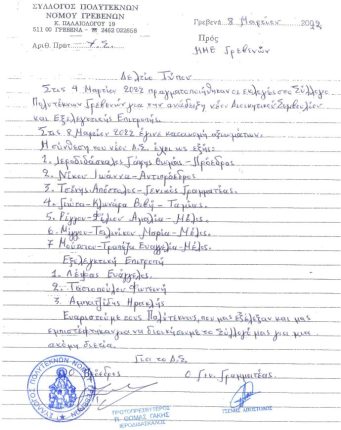 ΣΥΛΛΟΓΟΣ ΠΟΛΥΤΕΚΝΩΝ
ΝΟΜΟΥ ΓΡΕΒΕΝΩΝ
Κ. ΠΑΛΑΙΟΛΟΓΟΥ 10
511 00 ΓΡΕΒΕΝΑ - ☎ 2462 022558
Αριθ. Πρωτ.
Γρεβενά, 8 Μαρτίου 2022
Πρός
ΜΜΕ Γρεβενών
Δελτίο Τύπου
Στις 4 Μαρτίου 2022 πραγματοποιήθηκαν οι εκλογές στο Σύλλογο
Πολυτέκνων Γρεβενών για την ανάδειξη νέου Διοικητικού Συμβουλίου
και Εξελεγκτικής Επιτροπής.
Στις 8 Μαρτίου 2022 έγινε κατανομή αξιωμάτων.
Η σύνθεση του νέου Δ.Σ. έχει ως εξής:
1. Ιεροδιδάσκαλος Γάκης Θωμάς - Πρόεδρος
2. Ντίνου Ιωάννα - Αντιπρόεδρος
3. Τσένης Απόστολος - Γενικός Γραμματέας.
4. Γιώτα - Βιβή - Ταμίας.
5. Αμαλία - Μέλος.
6. Μαρία - Μέλος.
7 Ευαγγελία - Μέλος.
Εξελεγκτική Επιτροπή
1. Λέφας Ευάγγελος.
2. Τασιοπούλου Φωτεινή
3. Ηρακλής
Ευχαριστούμε τους Πολύτεκνους που μας εξέλεξαν και μας
εμπιστεύτηκαν για να διοικήσουμε το Σύλλογό μας για μια
ακόμη διετία.
Για το Δ.Σ.
Ο Πρόεδρος Ο Γεν. Γραμματέας.
ΣΥΛΛΟΓΟΣ ΠΟΛΥΤΕΚΝΩΝ ΝΟΜΟΥ ΓΡΕΒΕΝΩΝ
ΠΡΩΤΟΠΡΕΣΒΥΤΕΡΟΣ
Π. ΘΩΜΑΣ ΓΑΚΗΣ
ΙΕΡΟΔΙΔΑΣΚΑΛΟΣ
ΤΣΕΝΗΣ ΑΠΟΣΤΟΛΟΣ